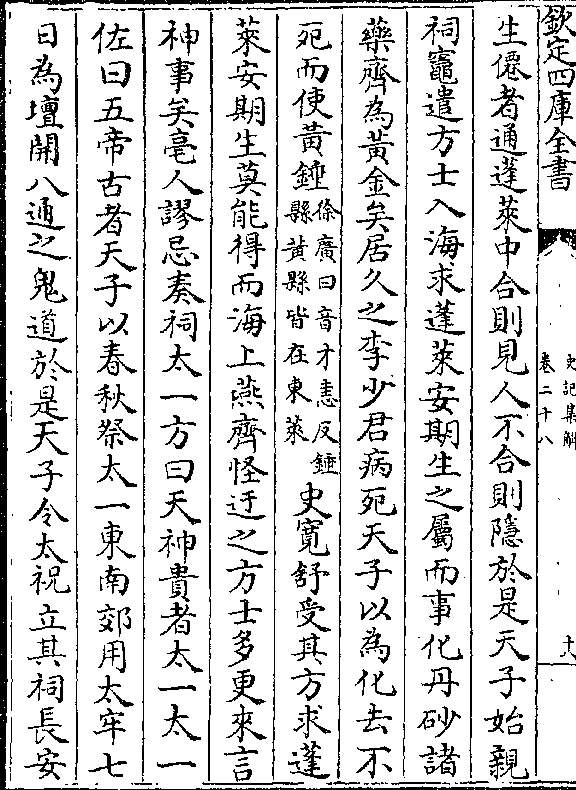 欽定四庫全書
史記集解
卷二十八
十八
生僊者通蓬萊中合則見人不合則隱於是天子始親
祠竈遣方士入海求蓬萊安期生之屬而事化丹砂諸
藥齊為黃金矣居久之李少君病死天子以為化去不
死而使黃錘徐廣曰音才恚反錘縣黃縣皆在東萊史寛舒受其方求蓬
萊安期生莫能得而海上燕齊怪迂之方士多更來言
神事矣亳人謬忌奏祠太一方曰天神貴者太一太一
佐曰五帝古者天子以春秋祭太一東南郊用太牢七
日為壇開八通之鬼道於是天子令太祝立其祠長安